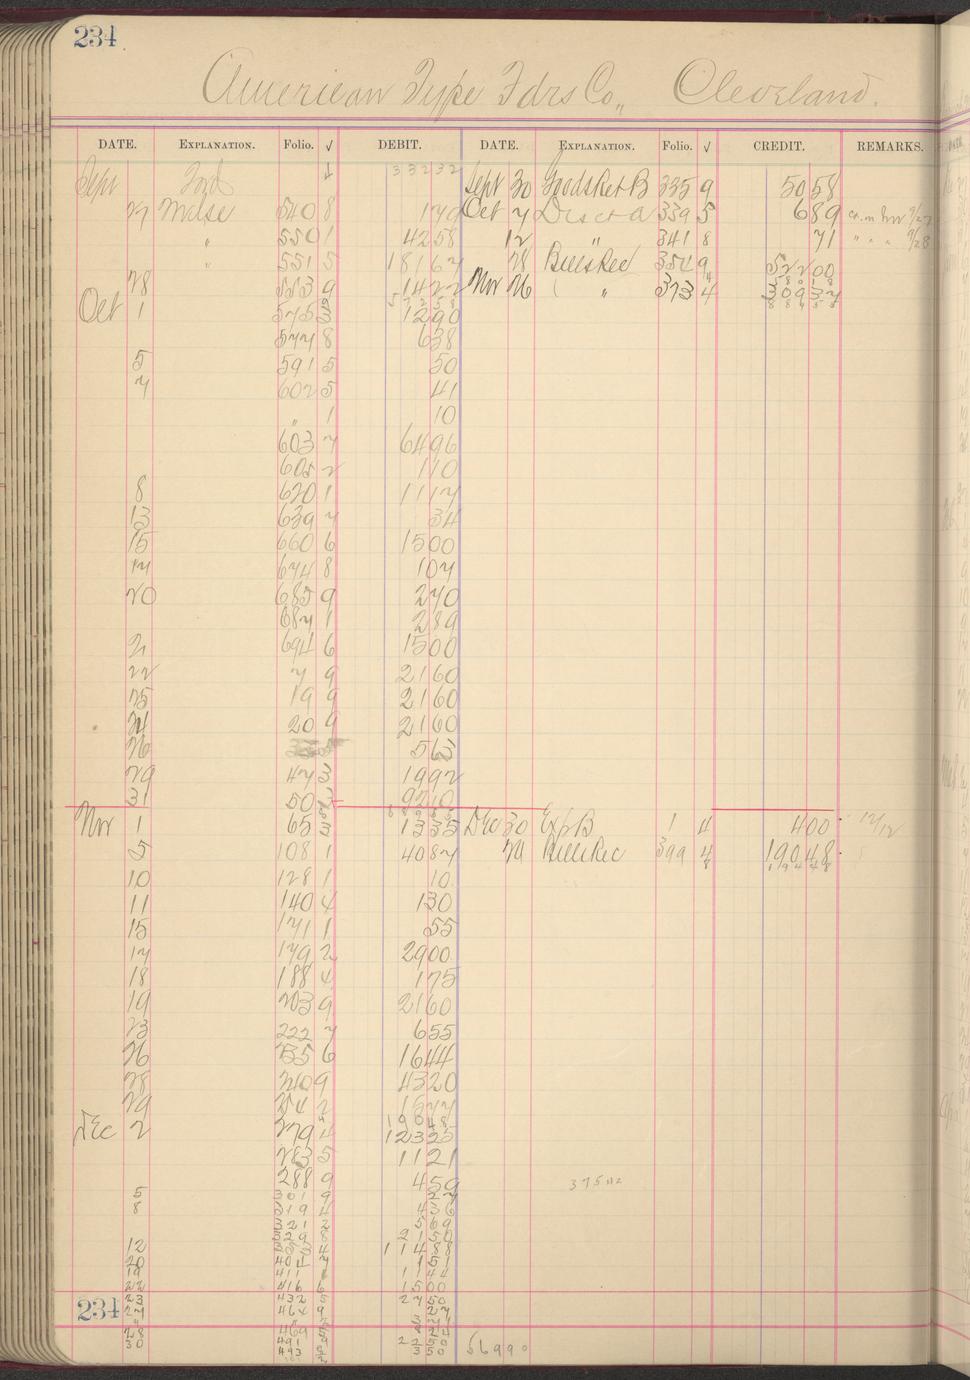 234
American Type Fdrs Co., Cleveland.
DATE. EXPLANATION. Folio. √ DEBIT. DATE. EXPLANATION. Folio. √ CREDIT. REMARKS.
Sept Ford 33232 Sept 30 Goods Ret B 335 9 5058
27 Mdse 540 8 179 Oct 7 Disct a 339 5 689
" 550 1 4258 12 " 341 8 71
" 551 5 18167 28 Bills Rec 354 9 52200
28 553 9 1422 Nov 26 " 373 4 30937
Oct 1 575 3 1290
577 8 638
5 591 5 50
7 602 5 41
" 1 10
603 7 6496
605 2 110
8 620 1 1117
13 639 7 34
15 660 6 1500
17 674 8 107
20 685 9 270
687 1 289
21 694 6 1500
22 7 9 2160
25 19 9 2160
24 20 9 2160
26 563
29 47 3 1992
31 50 9210
Nov 1 65 3 1335 Dec 30 Exp B 1 4 400 12/12
5 108 1 4087 24 Bills Rec 399 4 19048
10 128 1 10
11 140 4 130
15 171 1 55
17 179 2 2900
18 188 4 175
19 203 9 2160
23 222 7 655
26 235 6 1644
28 240 9 4320
29 254 2 1577
19048
Dec 2 279 4 12325
283 5 1121
288 9 459 37502
5 301 9 27
8 319 4 436
321 2 569
329 8 2150
12 4 11488
20 404 7 151
19 411 1 144
22 416 6 1500
234 23 432 5 2750
27 464 9 27
28 469
30 491 9 2250
493 350 56990